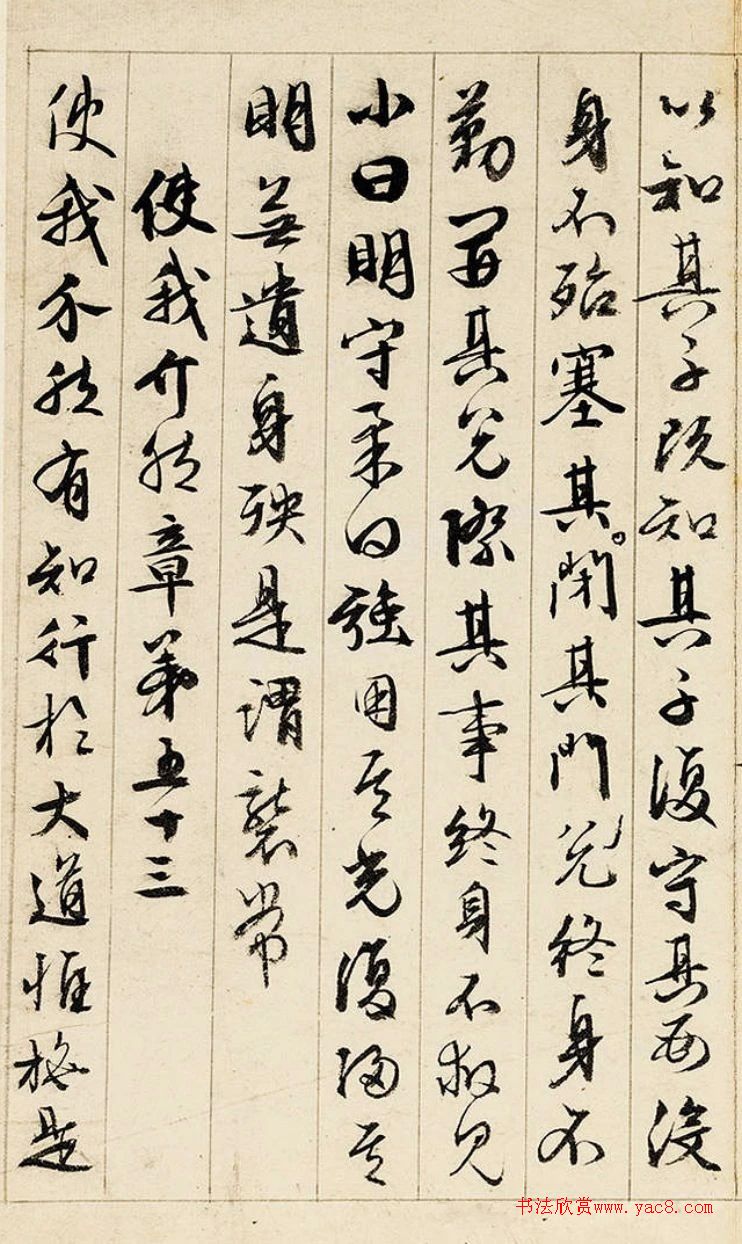 以知其子既知其子復守其母没
身不殆塞其閉其門兌終身不
勤開其兌際其事終身不救見
小曰明守柔曰強用其光復歸其
明無遺身殃是謂襲常
使我介然章第五十三
使我介然有知行於大道惟施是
书法欣赏www.yac8.com